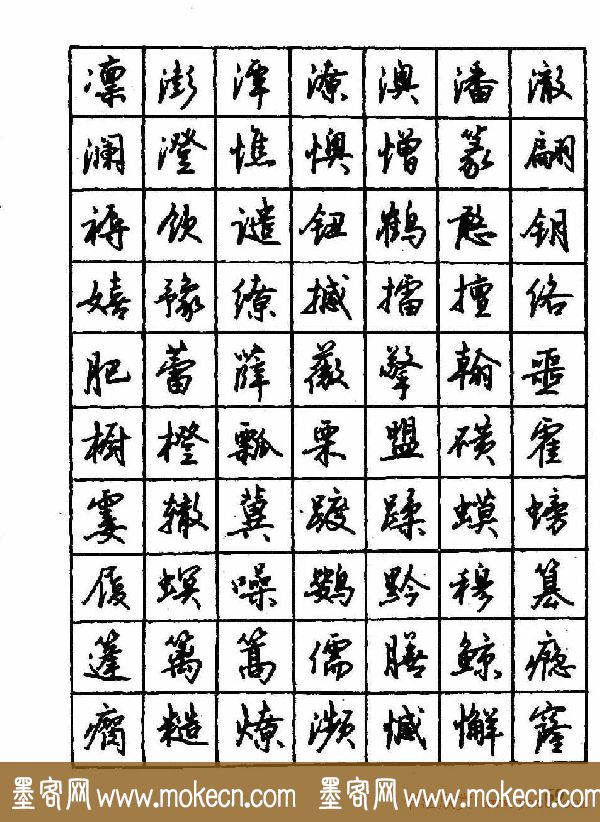 凛 澎 潭 潦 澳 潘 澈
澜 澄 憔 懊 憎 篆 翩
褥 谴 钮 鹤 憨 钥
嬉 豫 缭 撼 擂 擅 络
肥 蕾 薛 薇 擎 翰 噩
橱 橙 瓢 栗 盟 磺 霍
霎 辙 冀 踱 蹂 蟆 螃
螟 噪 鹦 黔 穆 篡
篷 篱 篙 儒 膳 鲸 瘾
瘸 糙 燎 濒 憾 懈 窿
墨客网 www.mokecn.com 墨客网 www.mokecn.com